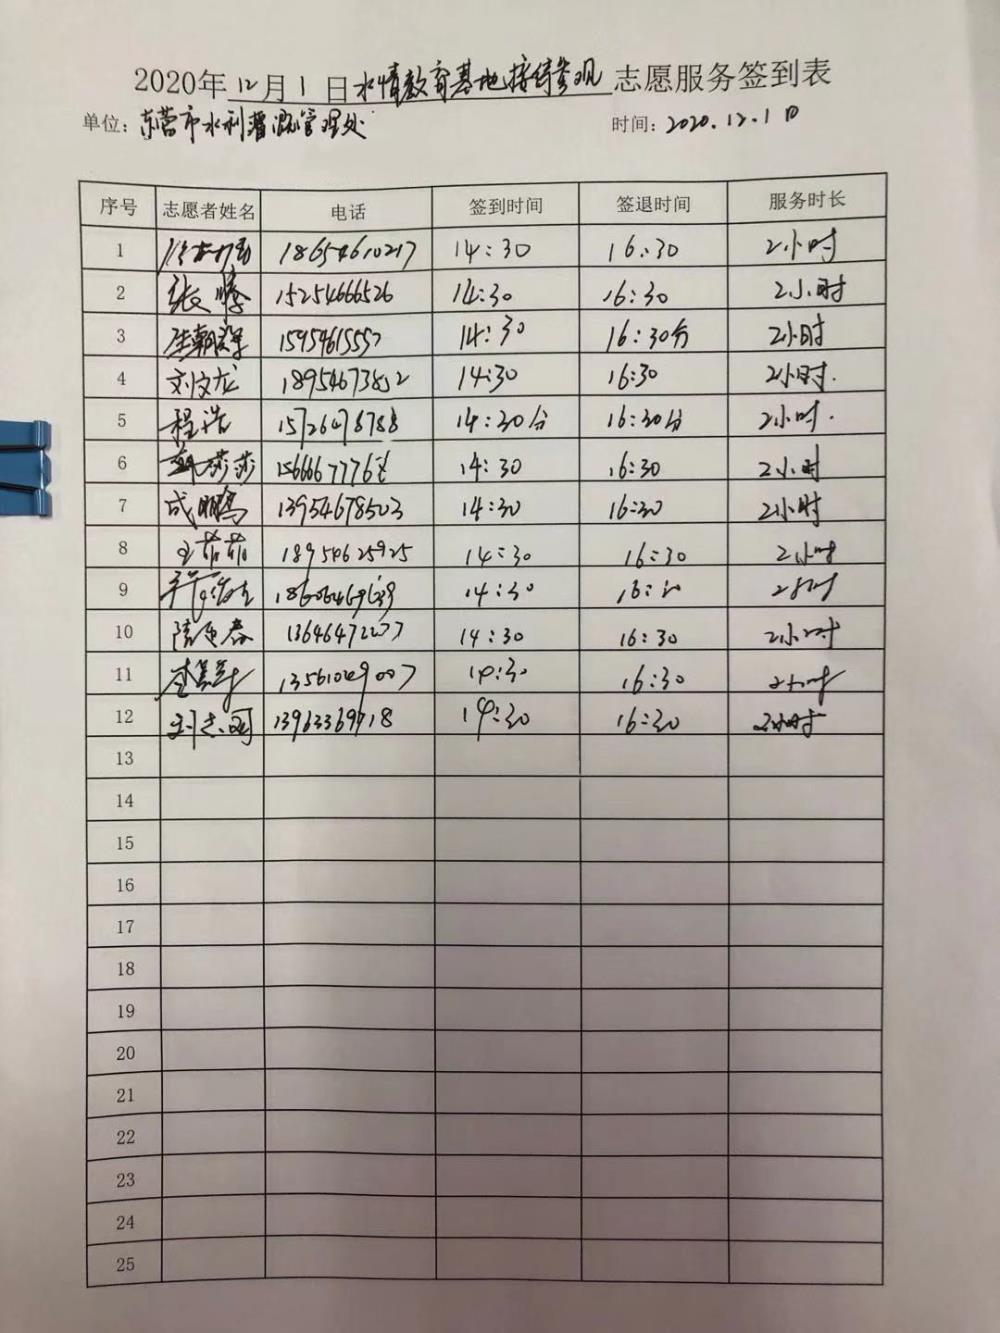 2020年12月1日水情教育基地接待参观志愿服务签到表
单位：东营市水利灌溉管理处 时间：2020.12.1日
序号 志愿者姓名 电话 签到时间 签退时间 服务时长
1 18654610217 14:30 16:30 2小时
2 张鹏 15254666526 14:30 16:30 2小时
3 14:30 16:30分 2小时
4 刘文龙 18954673812 14:30 16:30 2小时.
5 程浩 15726078788 14:30分 16:30分 2小时.
6 莎莎 14:30 16:30 2小时
7 成鹏 13954678503 14:30 16:30 2小时
8 王茹茹 18954625925 14:30 16:30 2小时
9 14:30 16:30 2小时
10 春 14:30 16:30 2小时
11 14:30 16:30 2小时
12 刘志明 14:30 16:30 2小时
13
14
15
16
17
18
19
20
21
22
23
24
25